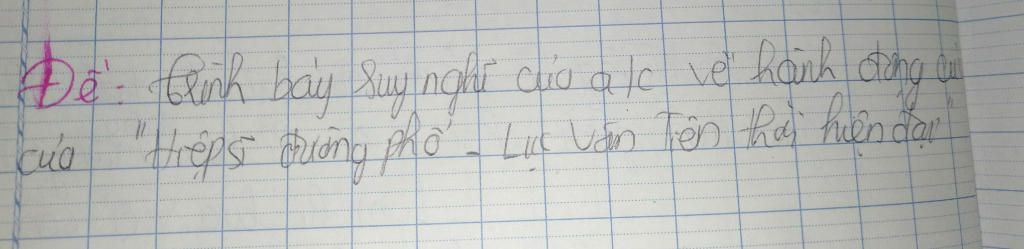 Đề: trình bày suy nghĩ của a/c về hành động
của "Hiệp sĩ đường phố - Lục Vân Tiên thời hiện đại"